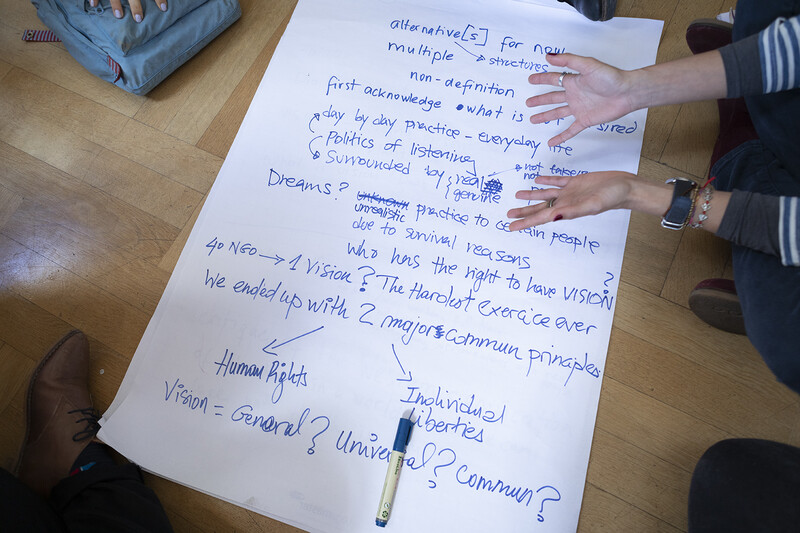 alternative[s] for now
multiple → structures
non-definition
first acknowledge • what is
day by day practice - everyday life
Politics of listening
Surrounded by { real
genuine
not
Dreams? unknown
unrealistic practice to certain people
due to survival reasons
who has the right to have VISION?
40 NGO → 1 Vision? The Hardest Exercice ever
We ended up with 2 major Commun principles
Human Rights
Individual
liberties
Vision = General? Universal? Commun?